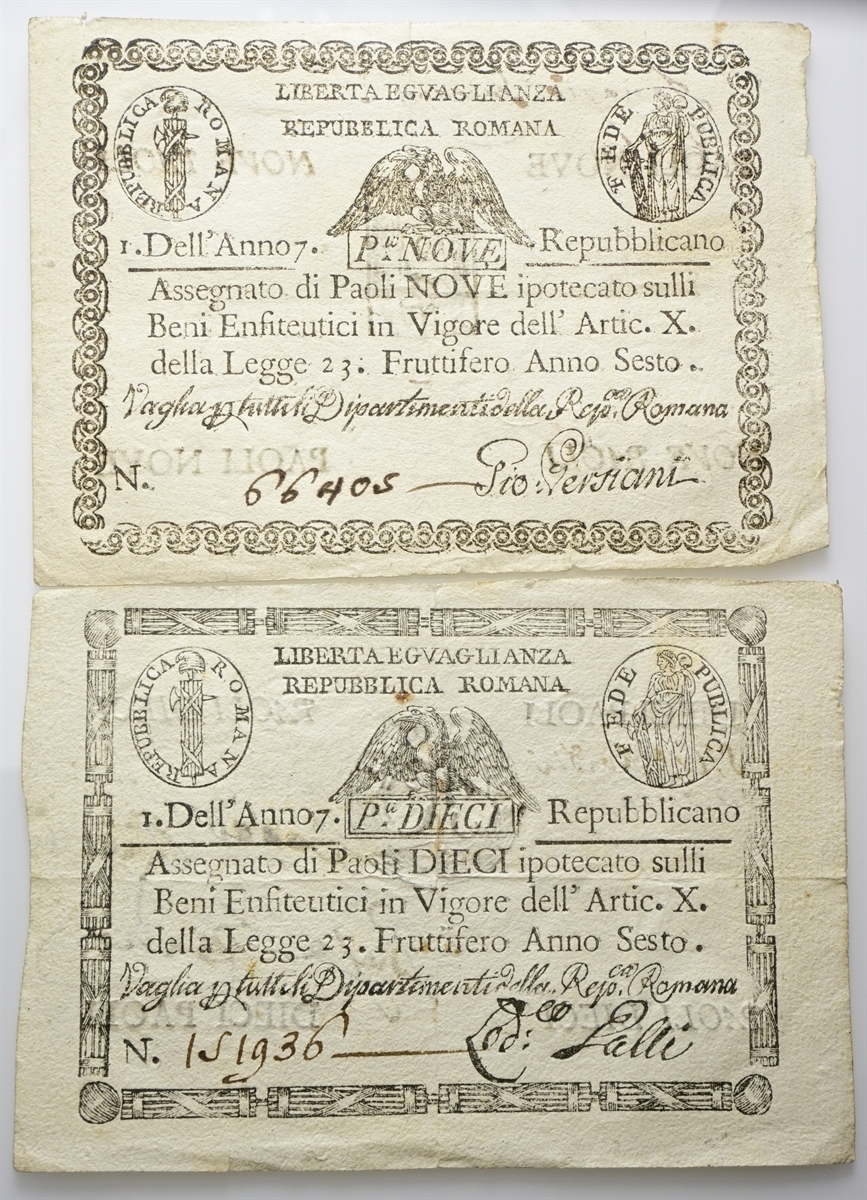 LIBERTA EGVAGLIANZA
REPUBBLICA ROMANA
REPUBBLICA ROMANA
FEDE PUBLICA
1. Dell'Anno 7. P.li NOVE . Repubblicano
Assegnato di Paoli NOVE ipotecato sulli
Beni Enfiteutici in Vigore dell' Artic. X.
della Legge 23. Fruttifero Anno Sesto.
Vaglia p tutti li Dipartimenti della Rep.ca Romana
N. 66405 Pio Persiani
LIBERTA EGVAGLIANZA
REPUBBLICA ROMANA
REPUBBLICA ROMANA
FEDE PUBLICA
1. Dell'Anno 7. P.li DIECI Repubblicano
Assegnato di Paoli DIECI ipotecato sulli
Beni Enfiteutici in Vigore dell' Artic. X.
della Legge 23. Fruttifero Anno Sesto.
Vaglia p tutti li Dipartimenti della Rep.ca Romana
N. 151936 Lod:co Palli